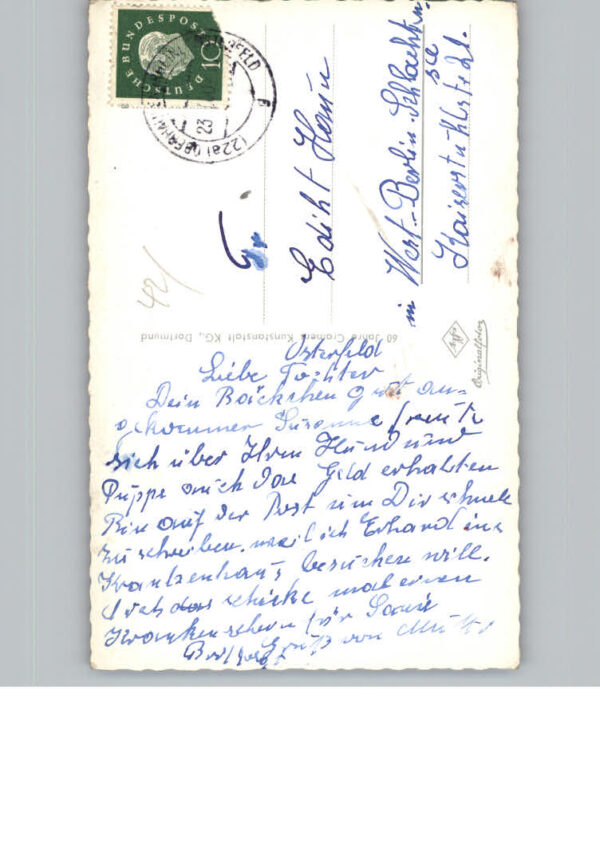 DEUTSCHE BUNDESPOST
10
(22a) OBERHAUSEN
23
42/
An
Ediht
in West-Berlin-Schlachten
see
60 Jahre Cramers Kunstanstalt KG., Dortmund
Agfa
Originalfoto
Osterfeld
Liebe Tochter
Dein Päckchen gut an-
gekommen Susanne freute
sich über Ihren Hund und
Puppe auch das Geld erhalten
Bin auf der Post um Dir schnell
zu schreiben. weil ich Erhard ins
Krankenhaus besuchen will.
schicke mal einen
Krankenschein für
Gruß von Mutti